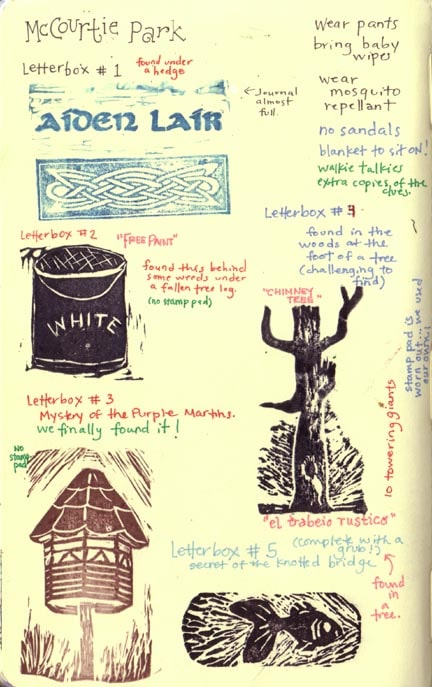 McCourtie Park
Letterbox # 1
found under
a hedge
AIDEN LAIR
← Journal
almost
full.
Wear pants
bring baby
wipes
wear
mosquito
repellant
no sandals
blanket to sit ON!
walkie talkies
extra copies of the
clues.
Letterbox #2
"FREE PAINT"
found this behind
some weeds under
a fallen tree log.
(no stamp pad)
WHITE
Letterbox # 3
Mystery of the Purple Martins.
we finally found it!
NO
stamp
pad
Letterbox # 4
found in the
woods at the
foot of a tree
(challenging to
find)
"CHIMNEY
TREE"
stamp pad is
worn out... we used
our own!
10 towering giants
"el trabeio rustico"
Letterbox # 5
(complete with a
grub!)
secret of the knotted bridge
found
in
a
tree.